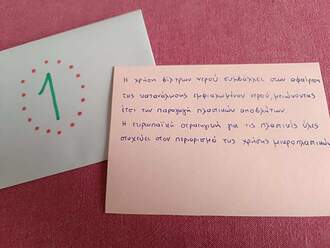 1
Η χρήση φίλτρων νερού συμβάλλει στην αφαίρεση
της κατανάλωσης εμφιαλωμένου νερού, μειώνοντας
έτσι την παραγωγή πλαστικών αποβλήτων.
Η ευρωπαϊκή στρατηγική για τις πλαστικές ύλες
στοχεύει στον περιορισμό της χρήσης μικροπλαστικών